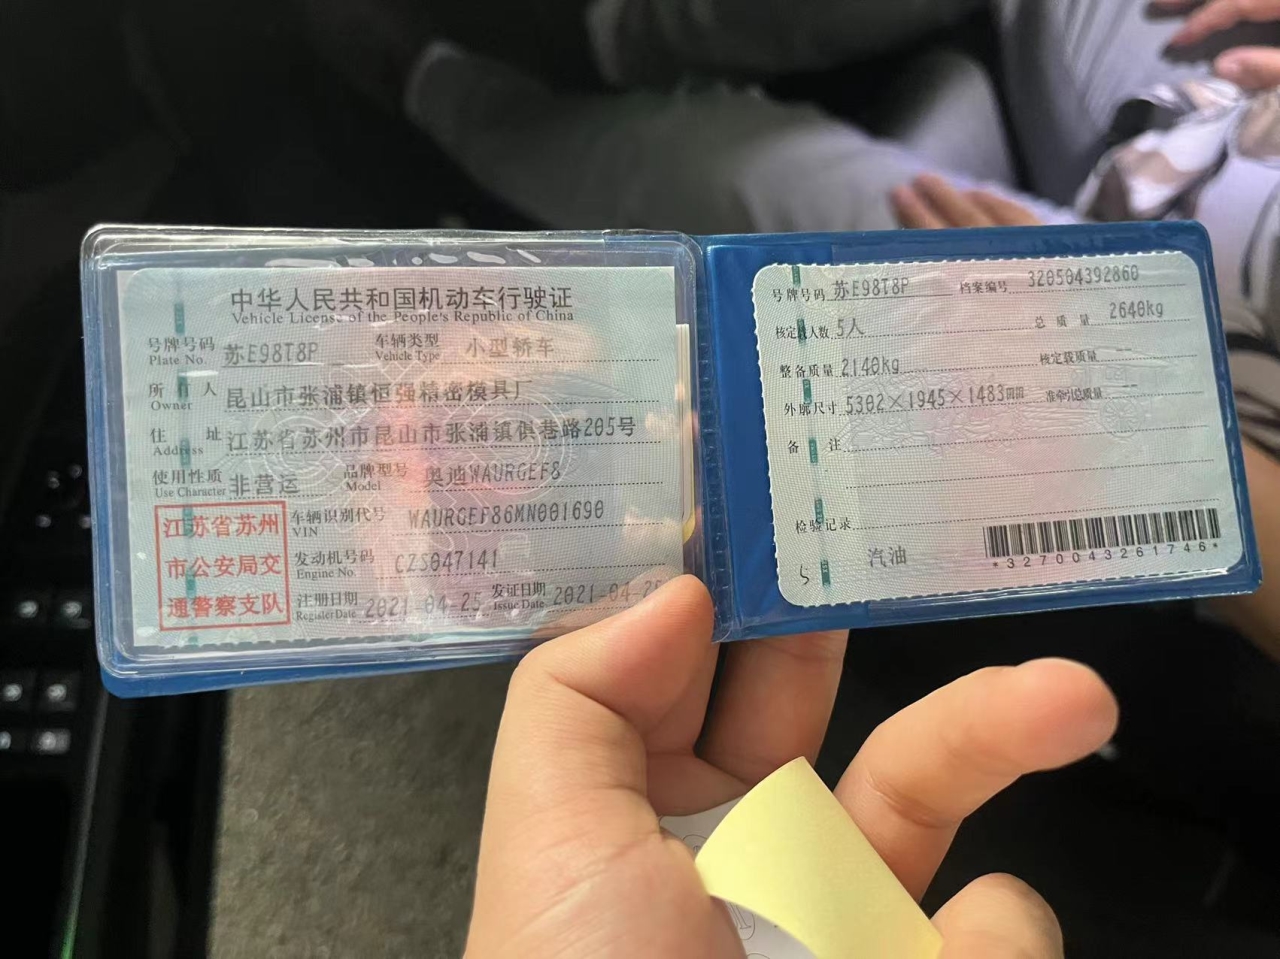 中华人民共和国机动车行驶证
Vehicle License of the People's Republic of China
号牌号码 苏E98T8P 车辆类型 小型轿车
Plate No. Vehicle Type
所有人 昆山市张浦镇恒强精密模具厂
Owner
住址 江苏省苏州市昆山市张浦镇俱巷路205号
Address
使用性质 非营运 品牌型号 奥迪WAURGEF8
Use Character Model
江苏省苏州
市公安局交
通警察支队
车辆识别代号 WAURGEF86MN001690
VIN
发动机号码 CZS047141
Engine No.
注册日期 2021-04-25 发证日期 2021-04-25
Register Date Issue Date
号牌号码 苏E98T8P 档案编号 320504392860
核定载人数 5人 总质量 2640kg
整备质量 2140kg 核定载质量 --
外廓尺寸 5302×1945×1483mm 准牵引总质量 --
备注
检验记录
汽油
*3270043261746*